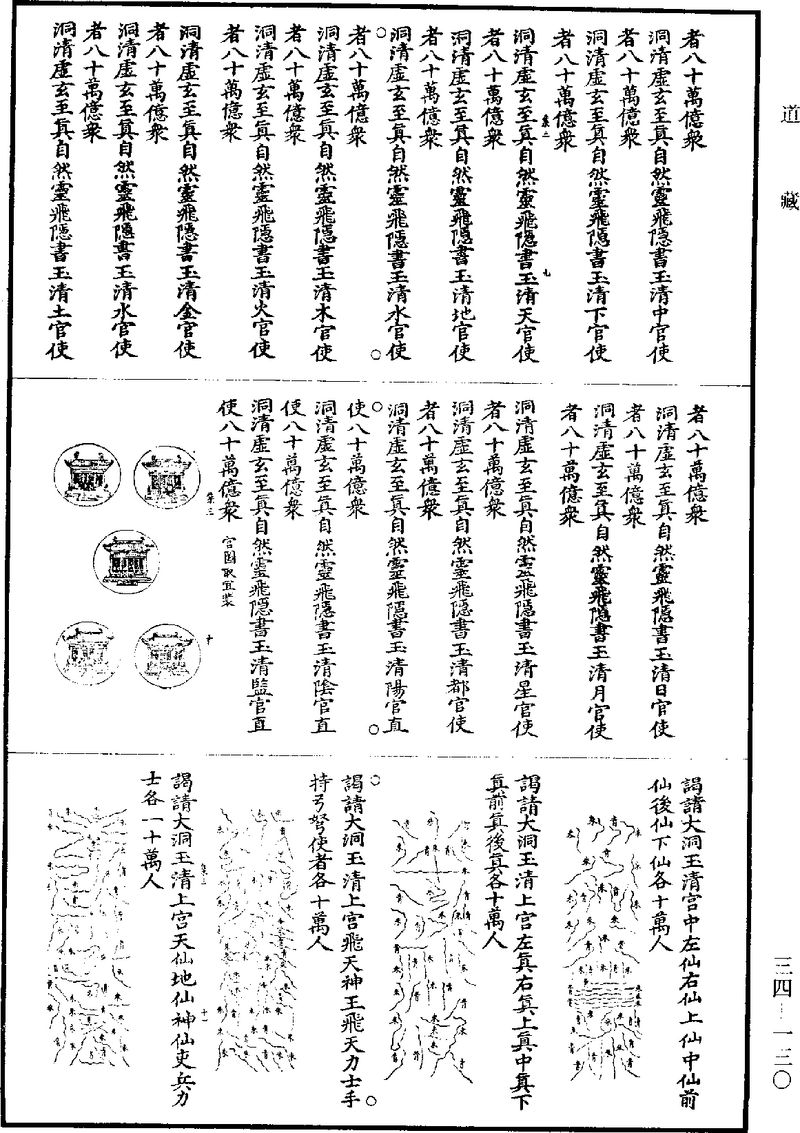 道藏
者八十萬億衆
洞清虛玄至眞自然靈飛隱書玉清中官使
者八十萬億衆
洞清虛玄至眞自然靈飛隱書玉清下官使
者八十萬億衆
洞清虛玄至眞自然靈飛隱書玉清天官使
者八十萬億衆
洞清虛玄至眞自然靈飛隱書玉清地官使
者八十萬億衆
洞清虛玄至眞自然靈飛隱書玉清水官使
者八十萬億衆
洞清虛玄至眞自然靈飛隱書玉清木官使
者八十萬億衆
洞清虛玄至眞自然靈飛隱書玉清火官使
者八十萬億衆
洞清虛玄至眞自然靈飛隱書玉清金官使
者八十萬億衆
洞清虛玄至眞自然靈飛隱書玉清水官使
者八十萬億衆
洞清虛玄至眞自然靈飛隱書玉清土官使
者八十萬億衆
洞清虛玄至眞自然靈飛隱書玉清日官使
者八十萬億衆
洞清虛玄至眞自然靈飛隱書玉清月官使
者八十萬億衆
洞清虛玄至眞自然靈飛隱書玉清星官使
者八十萬億衆
洞清虛玄至眞自然靈飛隱書玉清都官使
者八十萬億衆
洞清虛玄至眞自然靈飛隱書玉清陽官直
使八十萬億衆
洞清虛玄至眞自然靈飛隱書玉清陰官直
使八十萬億衆
洞清虛玄至眞自然靈飛隱書玉清監官直
使八十萬億衆
謁請大洞玉清宮中左仙右仙上仙中仙前
仙後仙下仙各十萬人
謁請大洞玉清上宮左眞右眞上眞中眞下
眞前眞後眞各十萬人
謁請大洞玉清上宮飛天神王飛天力士手
持弓弩使者各十萬人
謁請大洞玉清上宮天仙地仙神仙吏兵力
士各一十萬人
三四-一三〇